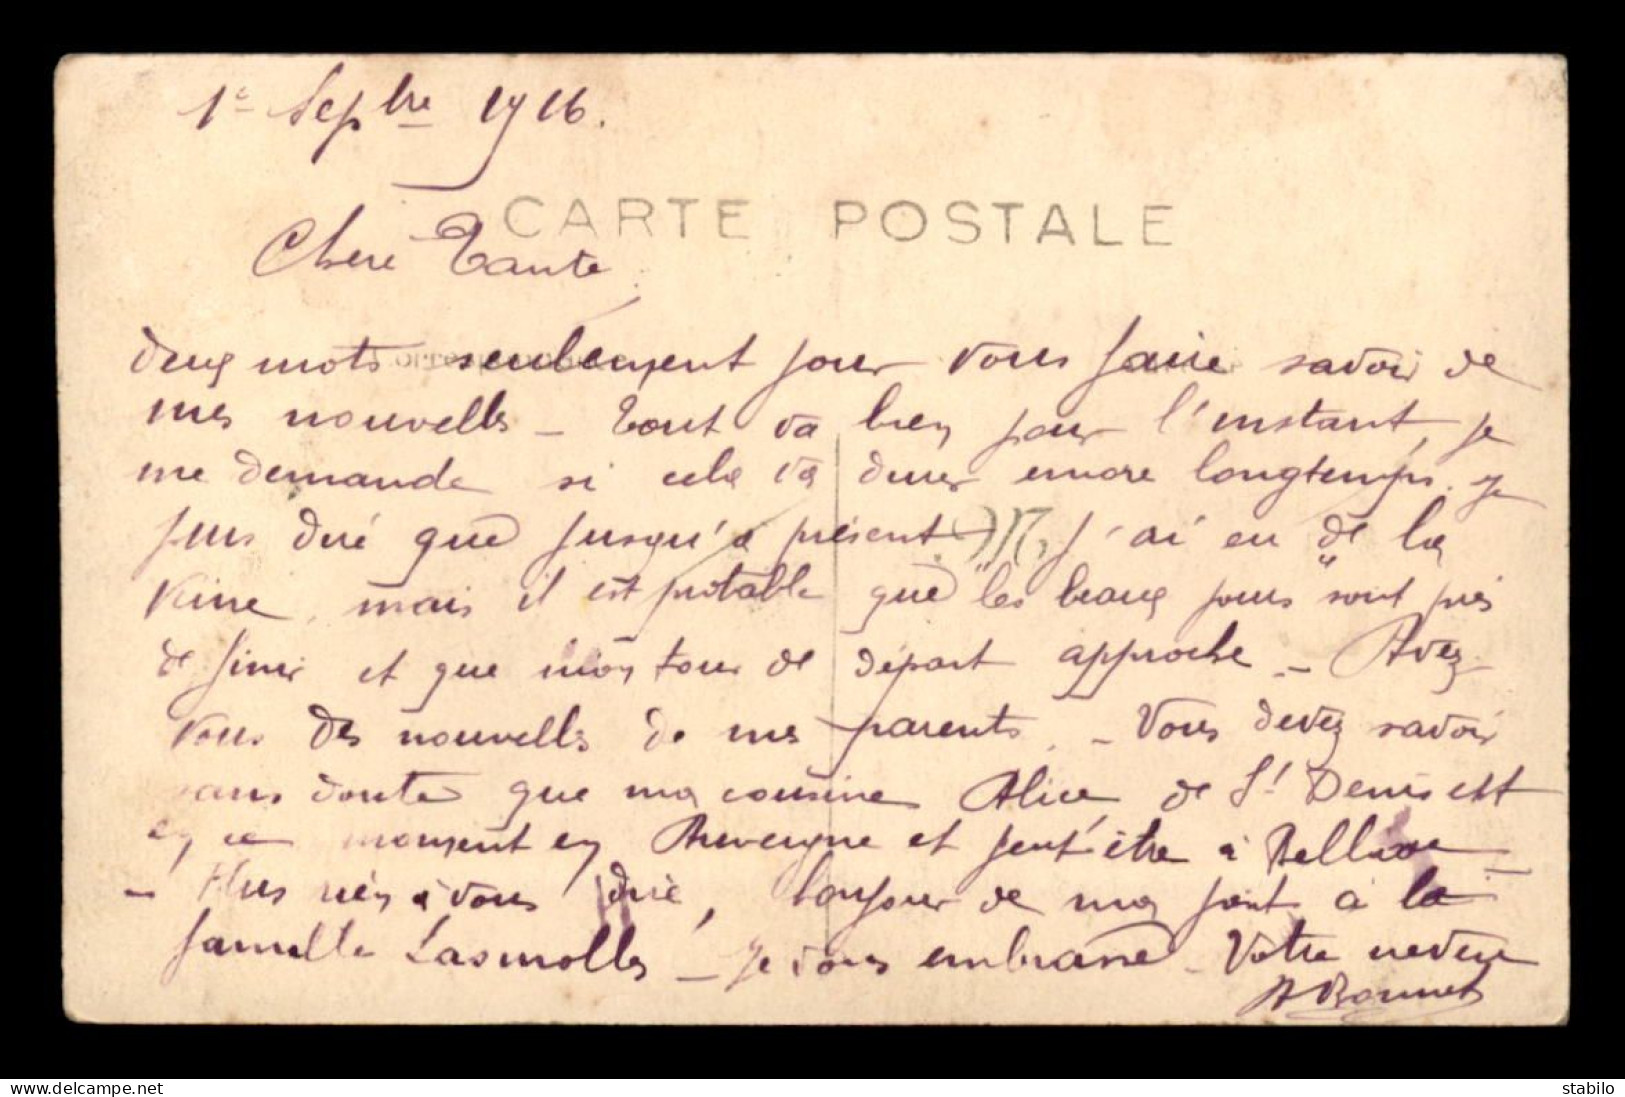 1e Septbre 1916.
CARTE POSTALE
Chère Tante
deux mots seulement pour vous faire savoir de
mes nouvelles - Tout va bien pour l'instant, je
me demande si cela va durer encore longtemps. Je
puis dire que jusqu'à présent j'ai eu de la
veine, mais il est probable que "les beaux jours" sont près
de finir et que mon tour de départ approche - Avez
vous des nouvelles de mes parents. - Vous devez savoir
sans doute que ma cousine Alice de St Denis est
en ce moment en Auvergne et peut être à
- Plus rien à vous dire, bonjour de ma part à la
famille Lasmolles - Je vous embrasse - Votre neveu
A Bonnet
delcampe.net
stabilo